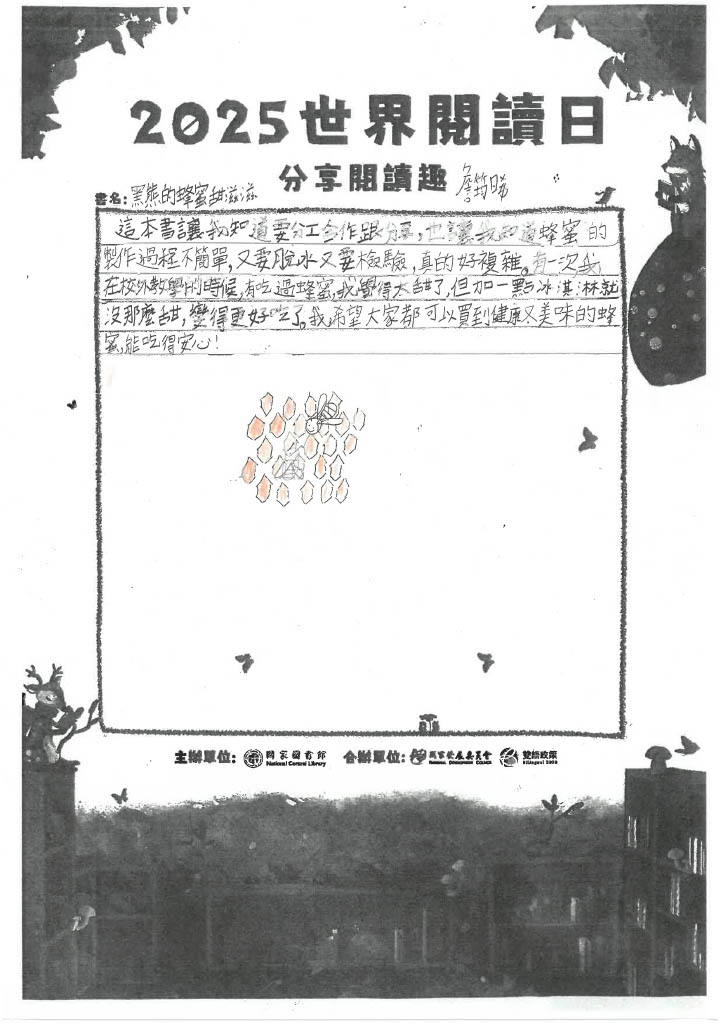 2025世界閱讀日
分享閱讀趣 詹筠晞
書名:黑熊的蜂蜜甜滋滋
這本書讓我知道要分工合作跟分享,也讓我知道蜂蜜的
製作過程不簡單,又要脫水又要檢驗,真的好複雜。有一次我
在校外教學的時候,有吃過蜂蜜,我覺得太甜了,但加一點冰淇淋就
沒那麼甜,變得更好吃了。我希望大家都可以買到健康又美味的蜂
蜜,能吃得安心!
主辦單位: 國家圖書館 National Central Library 合辦單位: 國家發展委員會 NATIONAL DEVELOPMENT COUNCIL 雙語政策 Bilingual 2030